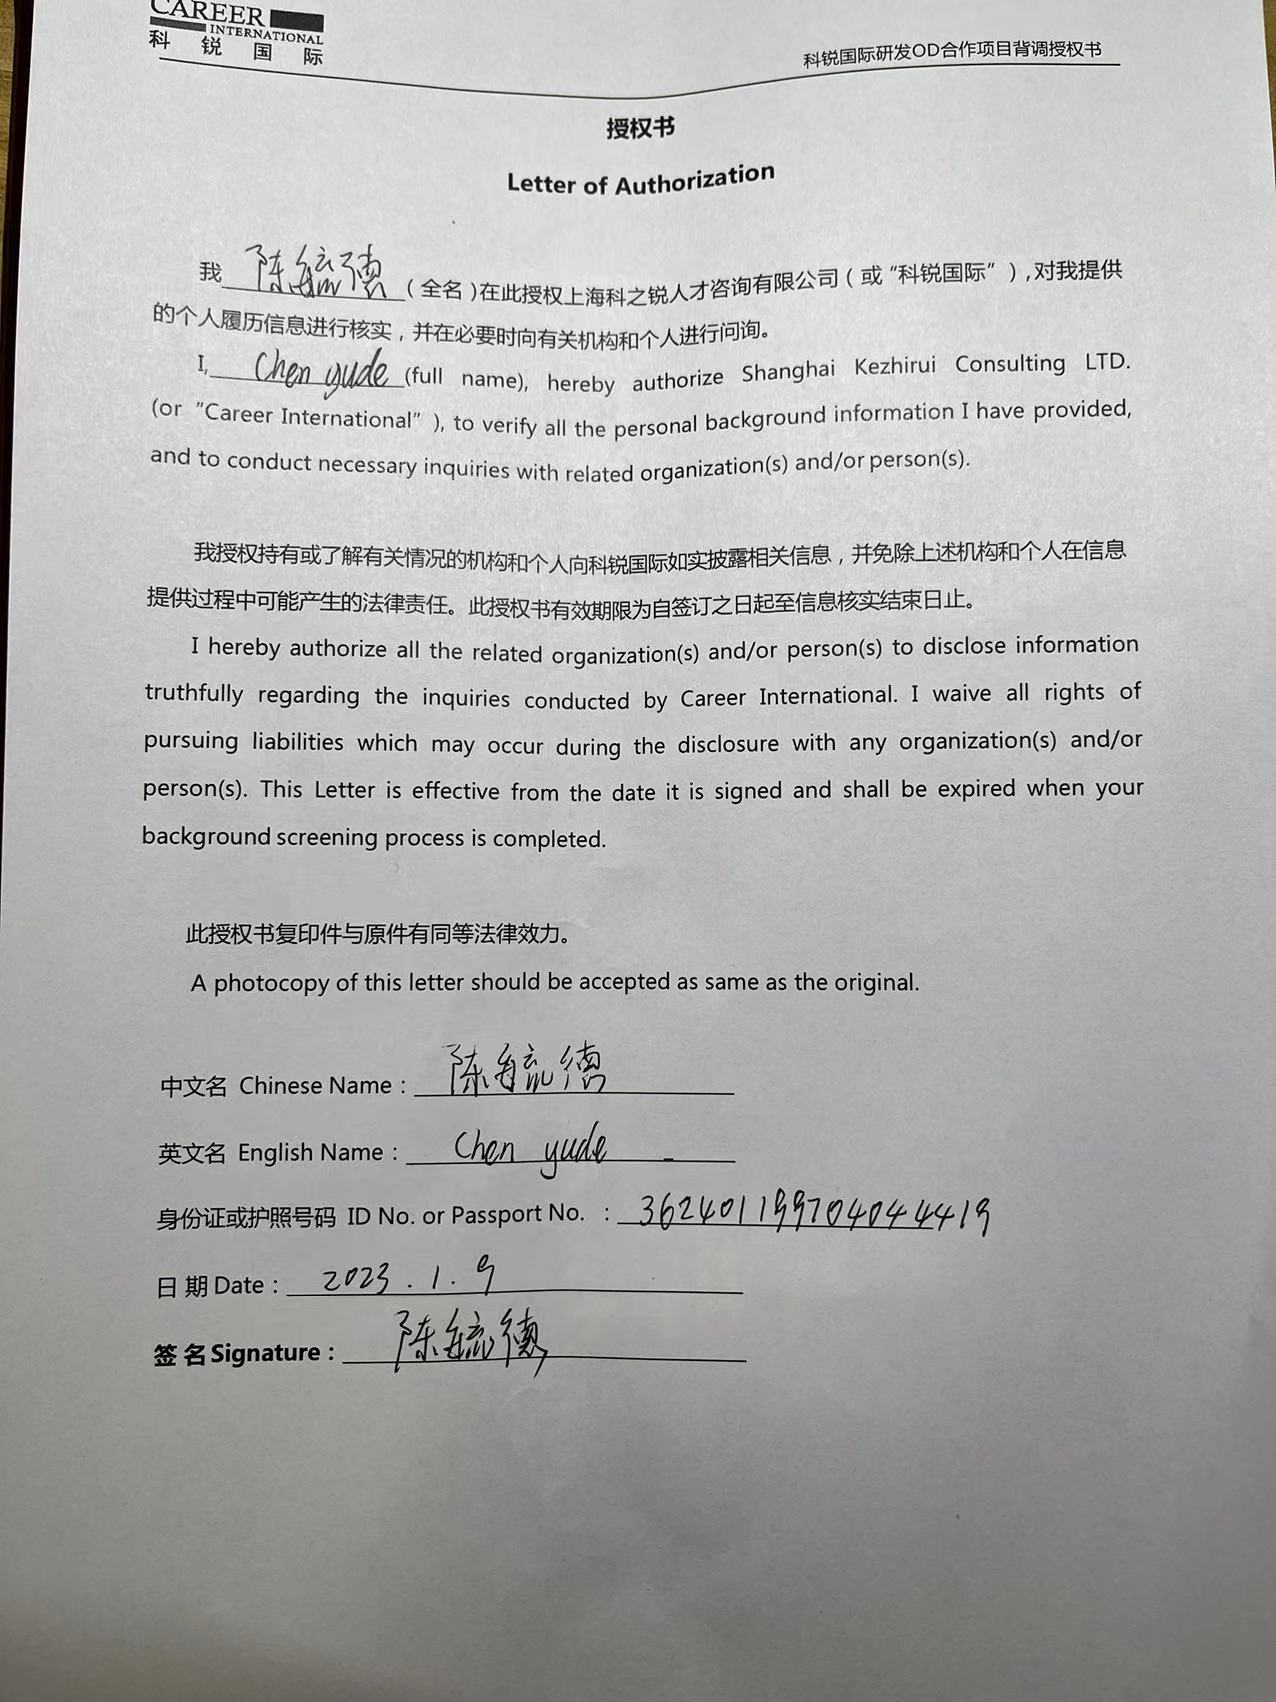 CAREER
INTERNATIONAL
科锐国际
科锐国际研发OD合作项目背调授权书
授权书
Letter of Authorization
我 陈毓德 (全名)在此授权上海科之锐人才咨询有限公司(或“科锐国际”),对我提供
的个人履历信息进行核实,并在必要时向有关机构和个人进行问询。
I, Chen yude (full name), hereby authorize Shanghai Kezhirui Consulting LTD.
(or “Career International”), to verify all the personal background information I have provided,
and to conduct necessary inquiries with related organization(s) and/or person(s).
我授权持有或了解有关情况的机构和个人向科锐国际如实披露相关信息,并免除上述机构和个人在信息
提供过程中可能产生的法律责任。此授权书有效期限为自签订之日起至信息核实结束日止。
I hereby authorize all the related organization(s) and/or person(s) to disclose information
truthfully regarding the inquiries conducted by Career International. I waive all rights of
pursuing liabilities which may occur during the disclosure with any organization(s) and/or
person(s). This Letter is effective from the date it is signed and shall be expired when your
background screening process is completed.
此授权书复印件与原件有同等法律效力。
A photocopy of this letter should be accepted as same as the original.
中文名 Chinese Name: 陈毓德
英文名 English Name: Chen yude
身份证或护照号码 ID No. or Passport No. : 362401199704044419
日 期 Date: 2023.1.9
签 名 Signature: 陈毓德